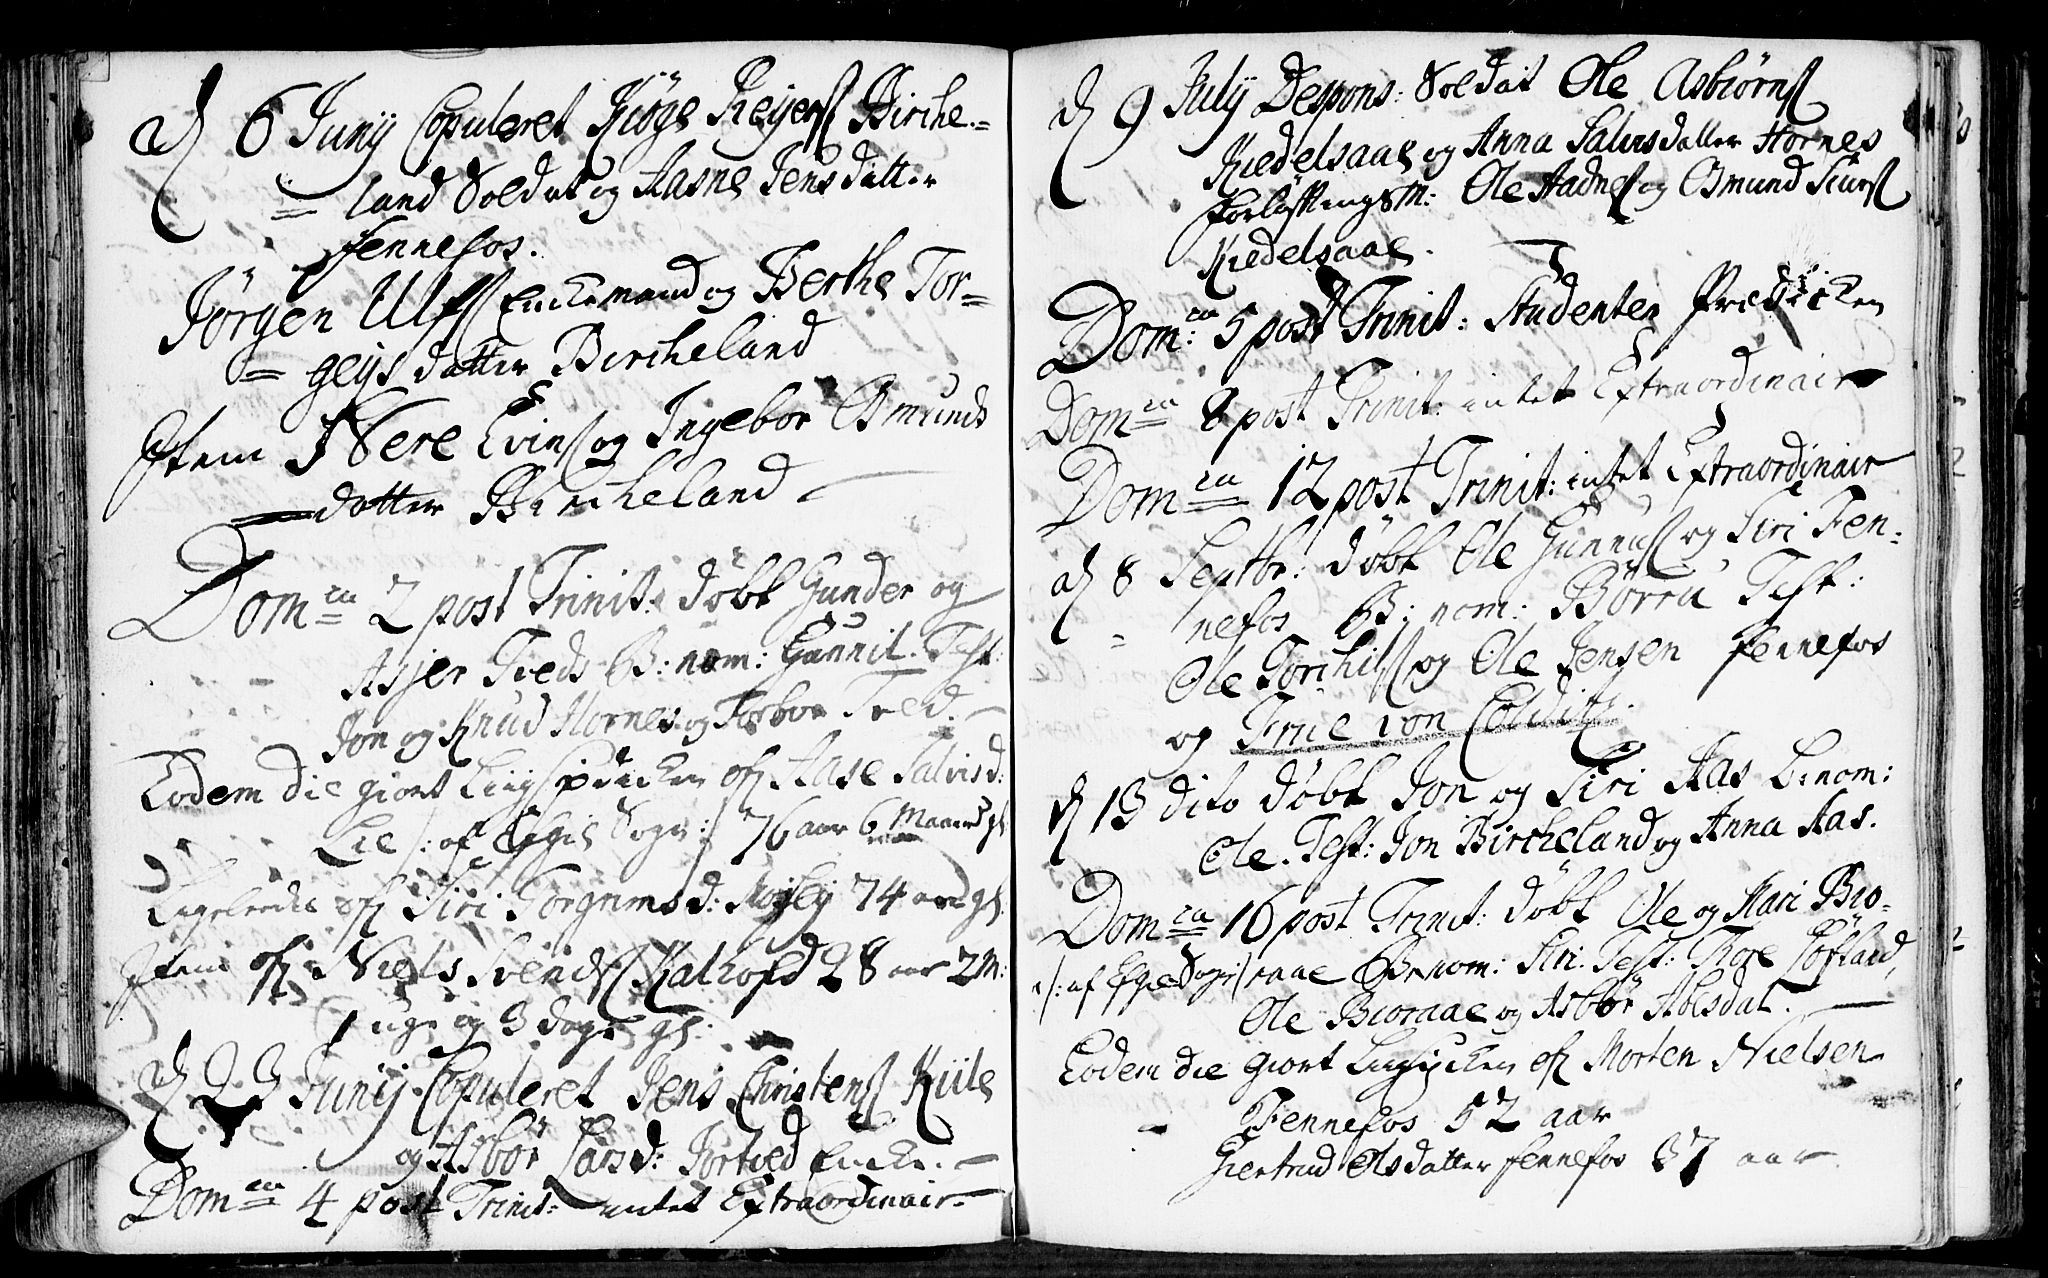 d 6 Junij Copuleret Kiøge Reijers Birche=
= land Soldat og Aasne Jensdatter
Fennefos.
Jørgen Ulfs Enkemand og Berthe Tor=
= geijs datter Bircheland
Item Nere Evins og Ingebor Osmunds
datter Bircheland
Dom:ca 2 post Trinit: døbt Gunder og
Asjer Treds B: nom: Gunnil. Test:
Jon og Knud Hornes og Torbor Tred.
Eodem die giort Liigspredicken ofr Aase Salvisd:
Lie /: af Sogn:/ 76 aar 6 Maaneder gl:
Ligeledes ofr Siri Torgrimsd: Moseij 74 aar gl.
Item ofr Niels Svends Kalhofd 28 aar 2 M:
1 uge og 3 dage gl:
d 23 Junij Copuleret Jens Christens Kiile
og Asbør Larsd: Enke.
Dom:ca 4 post Trinit: intet Extraordinair
d 9 Julij Despons: Soldat Ole Asbiørns
Kiedelsaae og Anna Salvisdatter Hornes
Forløftningsm: Ole Aadnes og Osmund Siurs
Kiedelsaae.
Dom:ca 5 post Trinit: Studenten Predicken
Dom:ca 8 post Trinit: intet Extraordinair
Dom:ca 12 post Trinit: intet Extraordinair
d 8 Septbr: døbt Ole Gunnus og Siri Fen=
= nefos B: nom: Børru Test:
Ole Torchils og Ole Jensen Fennefos
og Frue von Colditz.
d 13 dito døbt Jon og Siri Aas B: nom:
Ole. Test: Jon Bircheland og Anna Aas.
Dom:ca 16 post Trinit: døbt Ole og Mari Bio=
/: af Sogn:/ raae B: nom: Siri. Test: Tore Løfland,
Ole Bioraae og Asbør Abisdal.
Eodem die giort Liigpredicken ofr Morten Nielsen
Fennefos 52 aar
Giertrud Olsdatter Fennefos 37 aar.